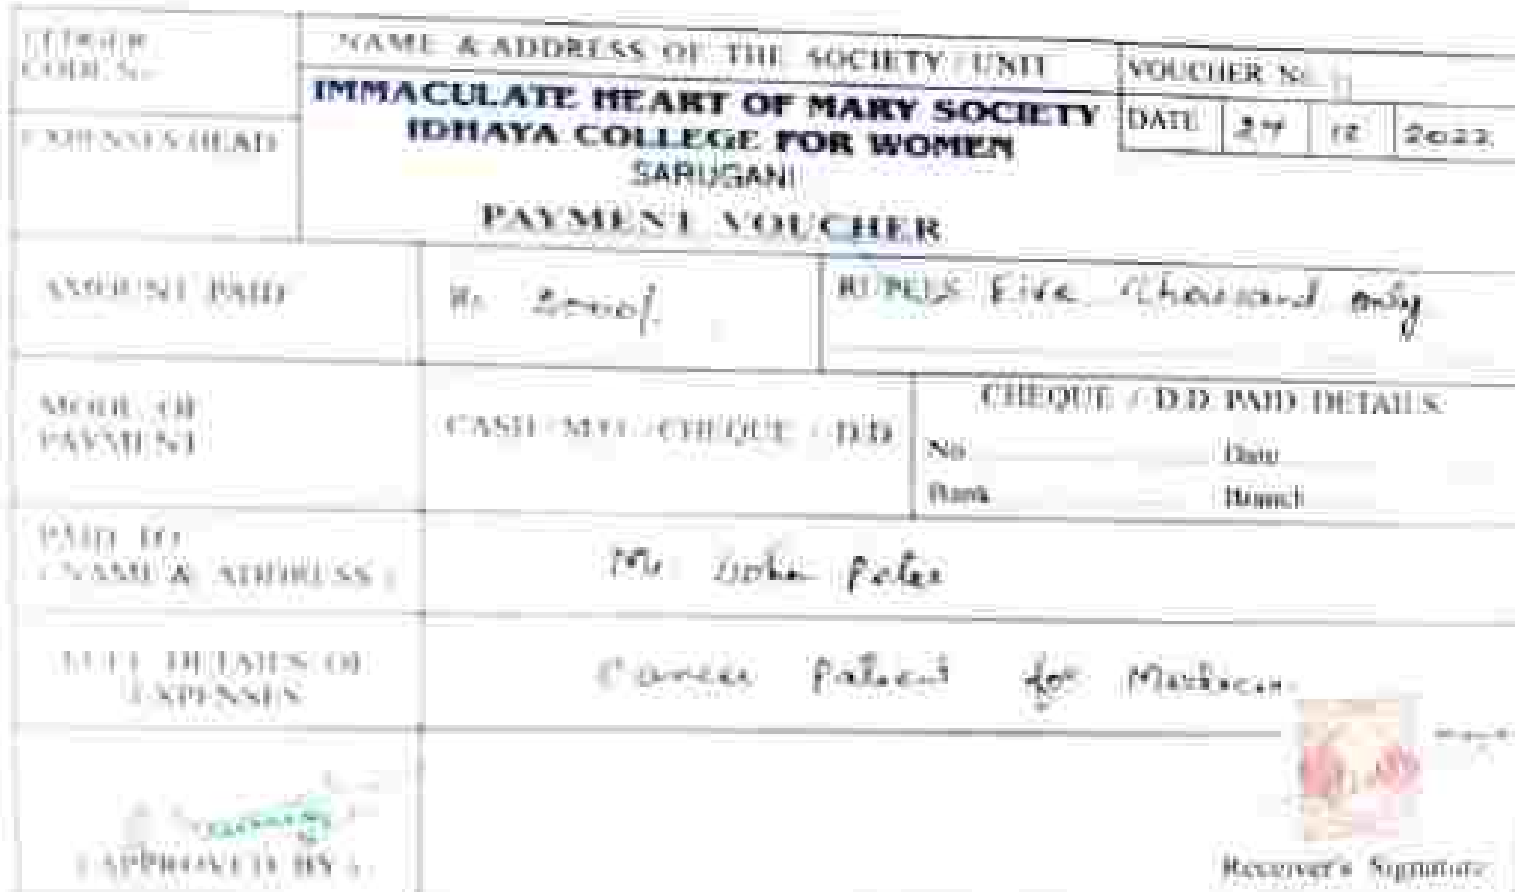 LEDGER
CODE No.
NAME & ADDRESS OF THE SOCIETY / UNIT
VOUCHER No.
IMMACULATE HEART OF MARY SOCIETY
DATE 12 2022
EXPENSES HEAD
IDHAYA COLLEGE FOR WOMEN
SARUGANI
PAYMENT VOUCHER
AMOUNT PAID
Rs. 5000/-
RUPEES Five Thousand only
MODE OF
PAYMENT
CASH / M.O. / CHEQUE / D.D
CHEQUE / D.D PAID DETAILS
No Date
Bank Branch
PAID TO
(NAME & ADDRESS)
Mr. John Peter
FULL DETAILS OF
EXPENSES
Cancer Patient for
(APPROVED BY)
Receiver's Signature